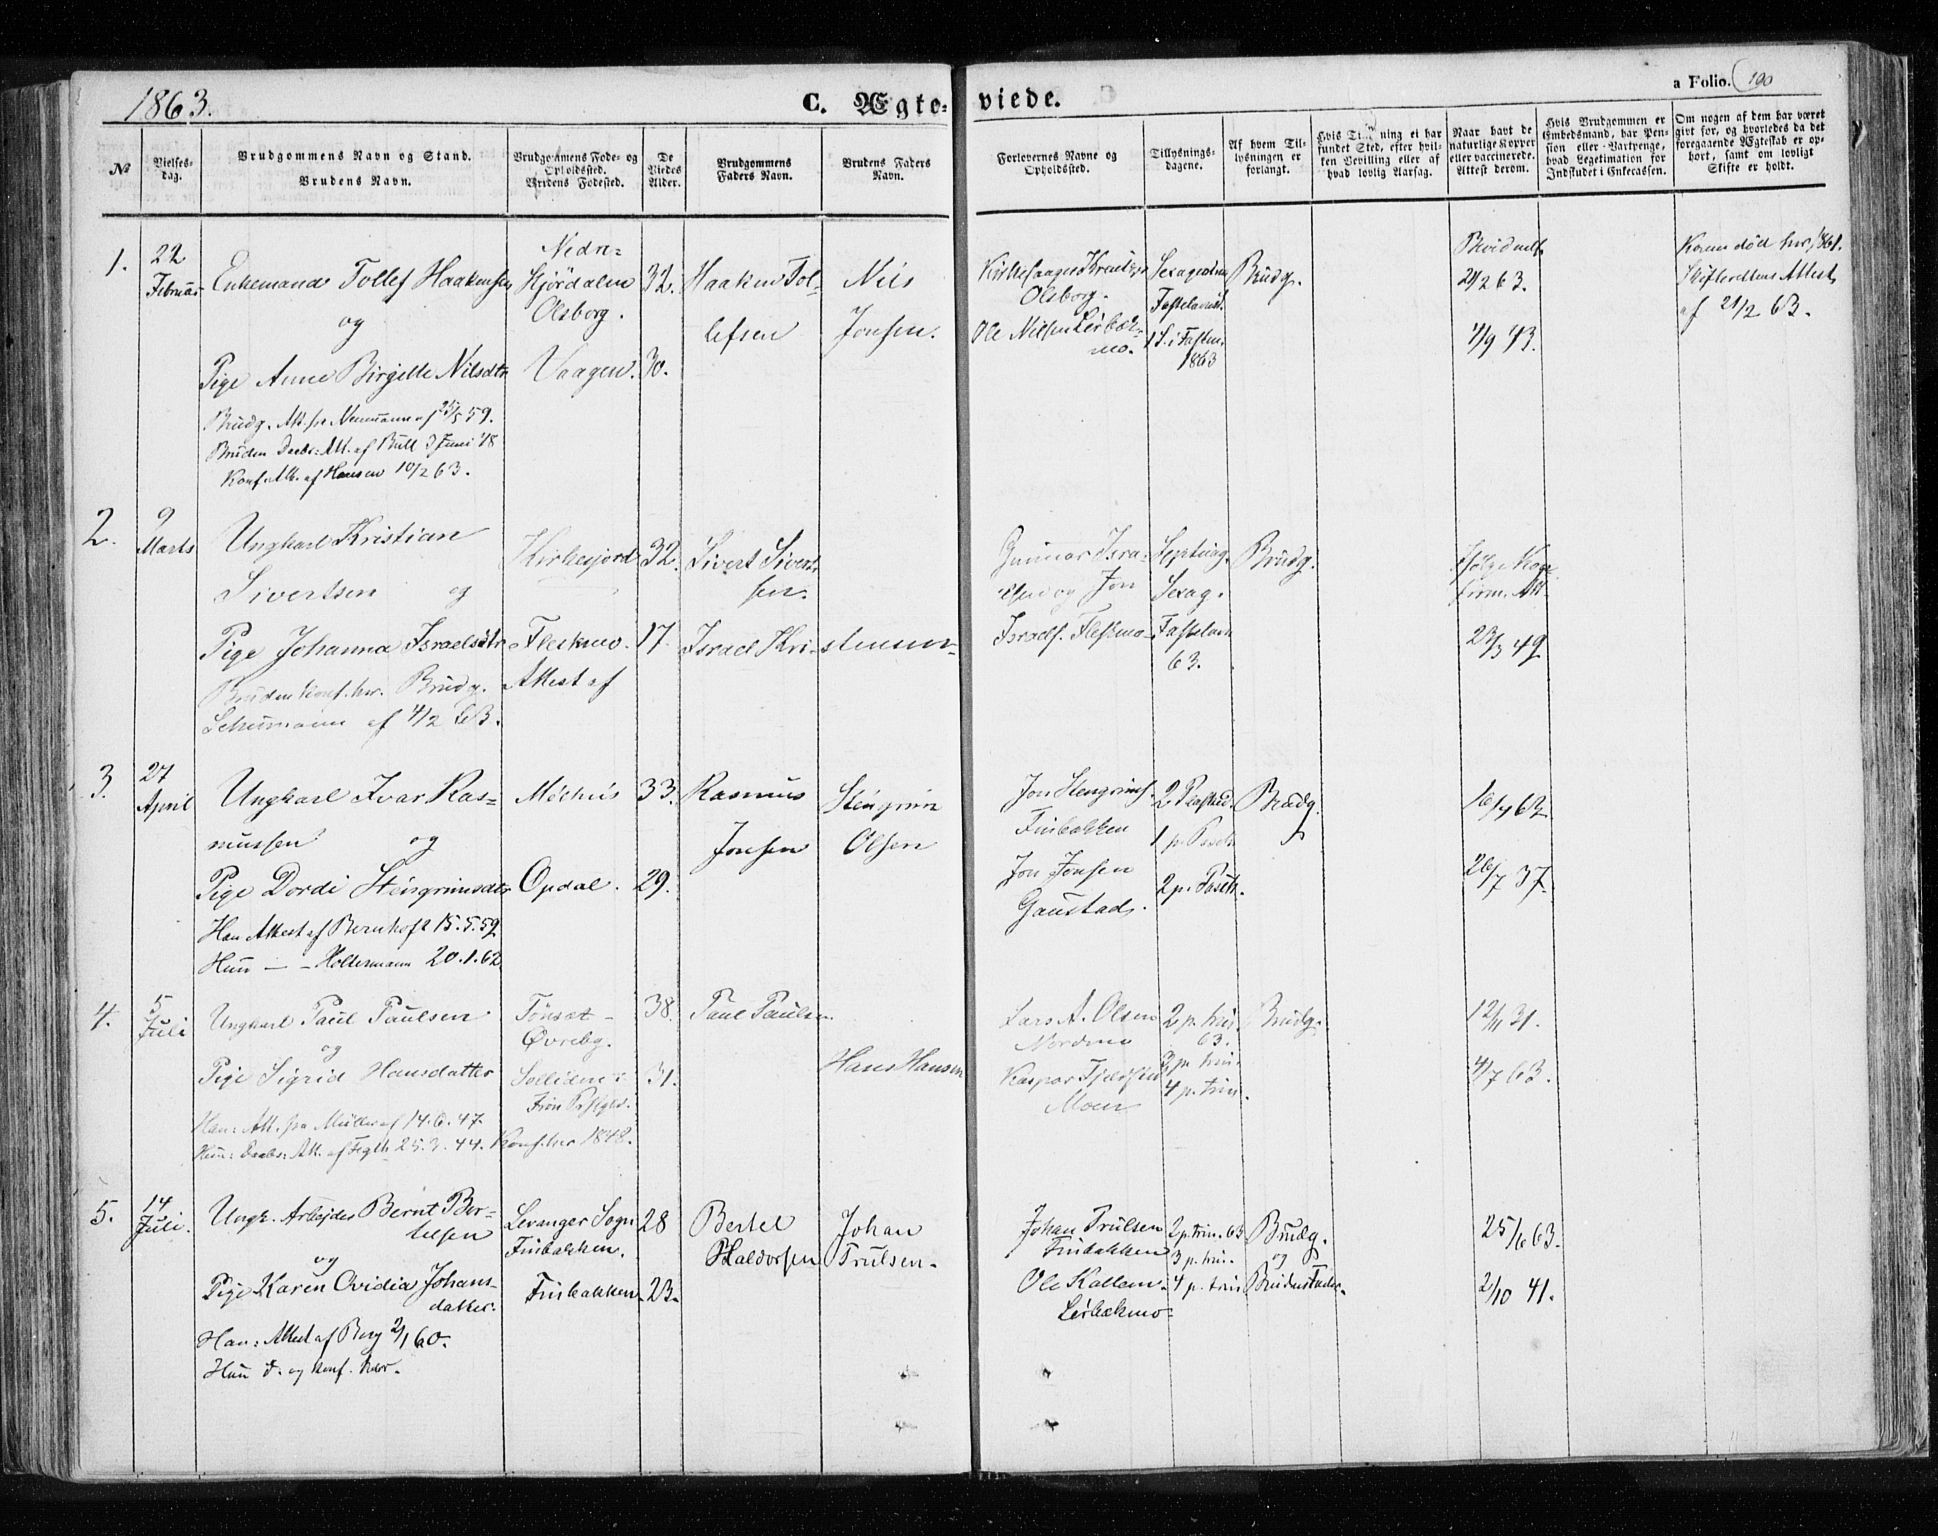 1863.
C. Ægte-
№
Vielses-
dag.
Brudgommens Navn og Stand.
Brudens Navn.
Brudgommens Føde- og
Opholdssted.
Brudens Fødested.
De
Viedes
Alder.
Brudgommens
Faders Navn.
Brudens Faders
Navn.
1.
22
Februar
Enkemand Tollef Haakensen
og
Pige Anne Birgitte Nilsdtr
Brudg. Att. fra Neumann af 25/5 59.
Bruden Daabs: Att. af Bull 3 Juni 48
Konf. Att. af Hansen 10/2 63.
Nedre-
Stjördalen
Olsborg.
Vaagen.
32.
30.
Haaken Tol-
lefsen
Nils
Jonsen.
2.
9
Marts
Ungkarl Kristian
Sivertsen og
Pige Johanna Israelsdtr
Bruden konf. her. Brudg. Attest af
Schumann af 4/2 63.
Kirkesjord
Fleskmo.
32.
17.
Sivert Sivert-
sen.
Israel Kristensen
3.
27
April
Ungkarl Ivar Ras-
mussen og
Pige Dordi Stengrimsdtr
Han Attest af Bernhoft 15.5.59
Hun — - Holtermann 20.1.62
Melhus
Opdal.
33.
29.
Rasmus
Jonsen
Stengrim
Olsen
4.
5
Juli
Ungkarl Paul Paulsen
og
Pige Sigrid Hansdatter
Han: Att. fra Müller af 14.6.47
Hun: Daabs: Att. af 25.3.44. Konf. her 1848.
Tönset -
Øvreby.
Solliden i
Fron Prstgld.
38.
31.
Paul Paulsen.
Hans Hansen
5.
14
Juli.
Ungk. Arbejder Bernt Ber-
telsen
og
Pige Karen Ovidia Johans-
datter.
Han: Attest af Berg 2/1 60.
Hun d. og konf. her.
Levanger Sogn
Finbakken.
Finbakken.
28
23.
Bertel
Haldorsen
Johan
Trulsen.
viede.
a Folio. 190
Forlovernes Navne og
Opholdssted.
Tillysnings-
dagene.
Af hvem Til-
lysningen er
forlangt.
Hvis Tillysning ei har
fundet Sted, efter hvil-
ken Bevilling eller af
hvad lovlig Aarsag.
Naar havt de
naturlige Kopper
eller vaccinerede.
Attest derom.
Hvis Brudgommen er
Embedsmand, har Pen-
sion eller Vartpenge,
hvad Legitimation for
Indskudet i Enkecassen.
Om nogen af dem har været
givt før, og hvorledes da det
foregaaende Ægteskab er op-
hørt, samt om lovligt
Skifte er holdt.
Kirkesanger
Olsborg.
Ole Nilsen Leirbæk-
mo.
Sexagesima
Fastelavns.
1 S. i Fasten.
1863
Brudg.
21/2 63.
Konen død her 1861.
Skifterettens Attest
af 21/2 63.
Gunnar Isra-
elsen og Jon
Israels. Fleskmo
Septuag.
Sexag.
Fastelavn
63.
Brudg.
Ifølge Kon-
firm. Att.
23/3 49
Jon Stengrims.
Finbakken
Jon Jonsen
Gaustad.
2 Paaskd.
1 p. Paask
2 p. Paask.
Brudg.
16/4 62
26/7 37.
Lars A. Olsen
Nordmo
Kaspar Fjeldsen
Moen
2 p. trin
63.
3 p. trin.
4 p. trin.
Brudg.
12/11 31.
4/7 63.
Johan Trulsen
Finbakken
Ole Kallem
Leirbekmo
2 p. trin. 63
3 p. trin.
4 p. trin
Brudg.
og
Brudens Fader.
25/6 63.
2/10 41.